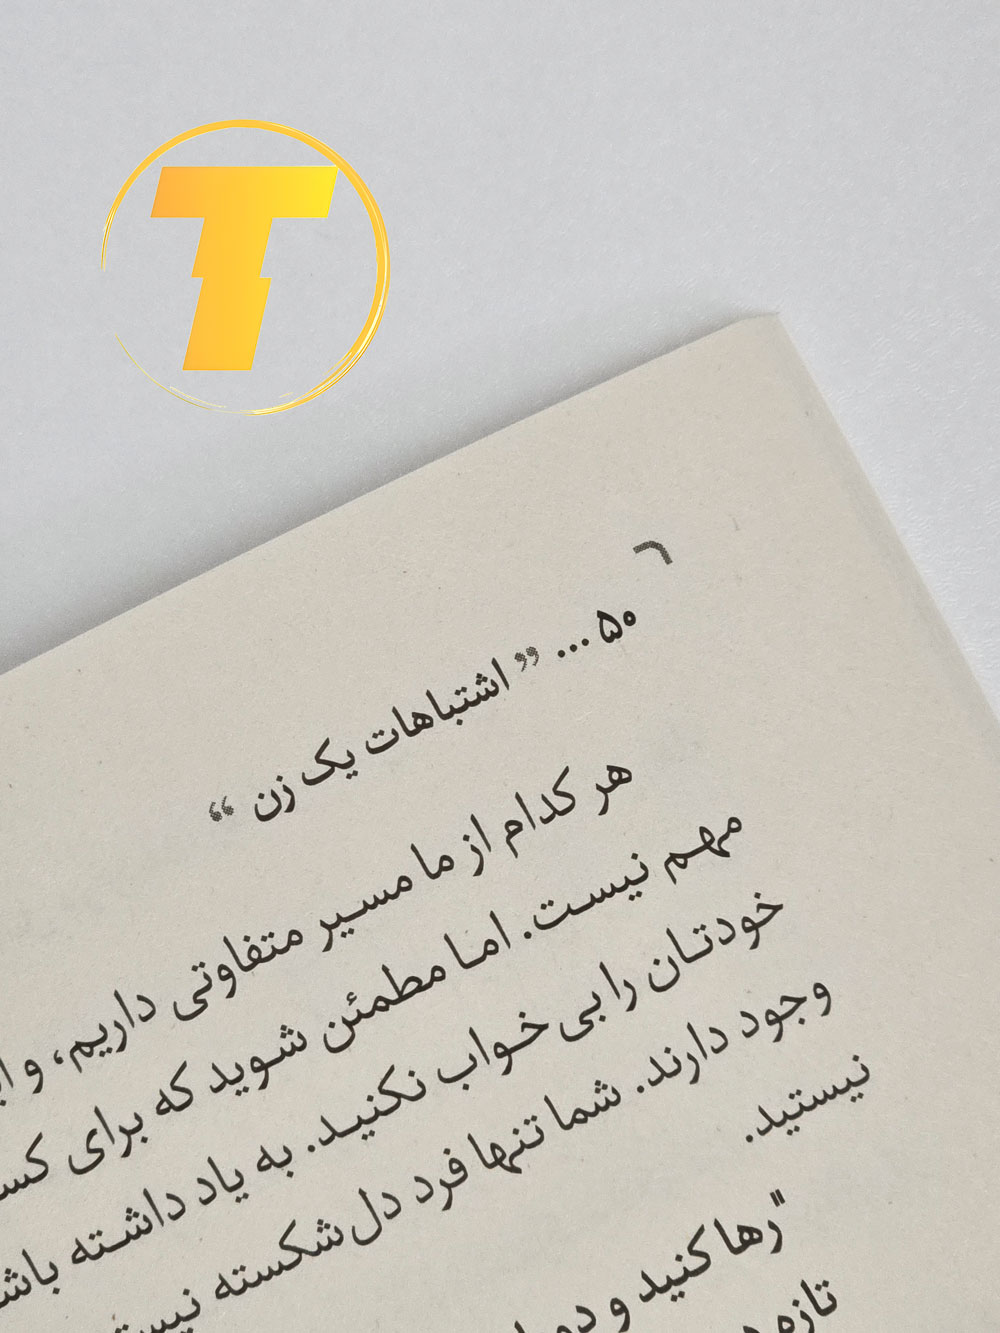 T
۵۰ ... ”اشتباهات یک زن“
هر کدام از ما مسیر متفاوتی داریم، و
مهم نیست. اما مطمئن شوید که برای
خودتان را بی خواب نکنید. به یاد داشته
وجود دارند. شما تنها فرد دل‌شکسته
نیستید.
"رها کنید و
تازه